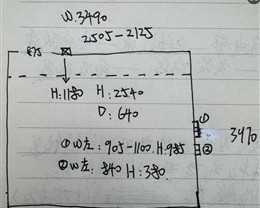 W.3490
2505-2125
H:1180 H:2540
D:640
①
3470
①W左:905-1100.H:985
②
②W左:840 H:380